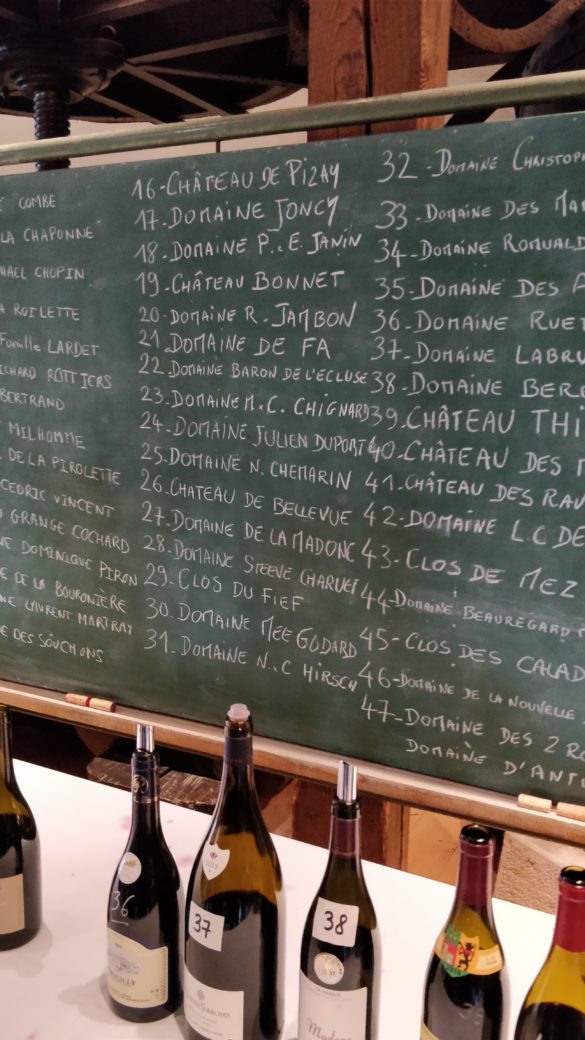 COMBE
LA CHAPONNE
CHOPIN
ROILETTE
Famille LARDET
RICHARD ROTTIERS
BERTRAND
MILHOMME
DE LA PIROLETTE
CEDRIC VINCENT
GRANGE COCHARD
DOMINIQUE PIRON
DE LA BOURONIÈRE
LAURENT MARTRAY
DES SOUCHONS
16-CHÂTEAU DE PIZAY
17-DOMAINE JONCY
18-DOMAINE P.E. JANIN
19-CHÂTEAU BONNET
20-DOMAINE R. JAMBON
21 DOMAINE DE FA
22-DOMAINE BARON DE L'ECLUSE
23-DOMAINE M.C. CHIGNARD
24-DOMAINE JULIEN DUPORT
25-DOMAINE N. CHEMARIN
26-CHATEAU DE BELLEVUE
27-DOMAINE DE LA MADONE
28-DOMAINE STEEVE CHARVET
29-CLOS DU FIEF
30-DOMAINE MEE GODARD
31-DOMAINE N.C HIRSCH
32-DOMAINE CHRISTOPH
33-DOMAINE DES
34-DOMAINE ROMUALD
35-DOMAINE DES
36-DOMAINE RUET
37-DOMAINE LABRU
38-DOMAINE BER
39-CHÂTEAU THI
40-CHÂTEAU DES
41-CHÂTEAU DES RAV
42-DOMAINE LC DE
43-CLOS DE MEZ
44-DOMAINE BEAUREGARD
45-CLOS DES CALAD
46-DOMAINE DE LA NOUVELLE
47-DOMAINE DES 2 RO
DOMAINE D'ANT
36
37
38